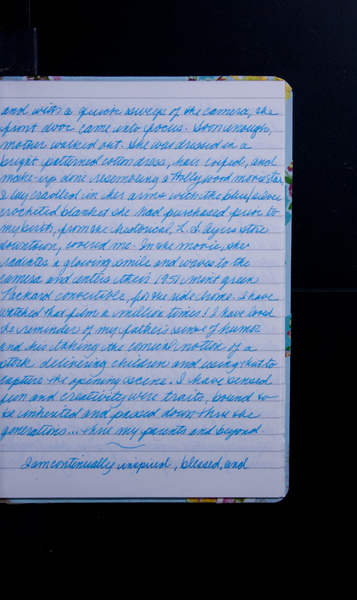 and with a quick swipe of the camera, the
front door came into focus. Soon enough,
mother walked out. She was dressed in a
bright patterned cotton dress, hair coifed, and
make-up done resembling a Hollywood movie star.
I lay cradled in her arms with the blue/silver
crocheted blanket she had purchased prior to
my birth, from the historical, L. S. Ayers store
downtown, covered me. In the movie, she
radiates a glowing smile and waves to the
camera and enters their 1951 mint green
Packard convertible, for the ride home. I have
watched that film a million times! I have loved
the reminder of my father's sense of humor
and his taking the comical notion of a
stork delivering children and using that to
capture the opening scene. I have sensed
fun and creativity were traits, bound to
be inherited and passed down thru the
generations... thru my parents and beyond.
I am continually inspired, blessed, and